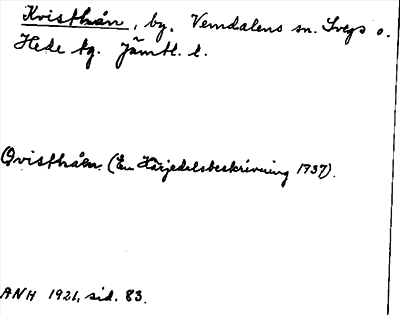 Kvisthån, by, Vemdalens sn. Svegs o.
Hede tg. Jämtl. l.
Qvisthåen. (En Härjedalsbeskrivning 1737).
ANH 1921, sid. 83.